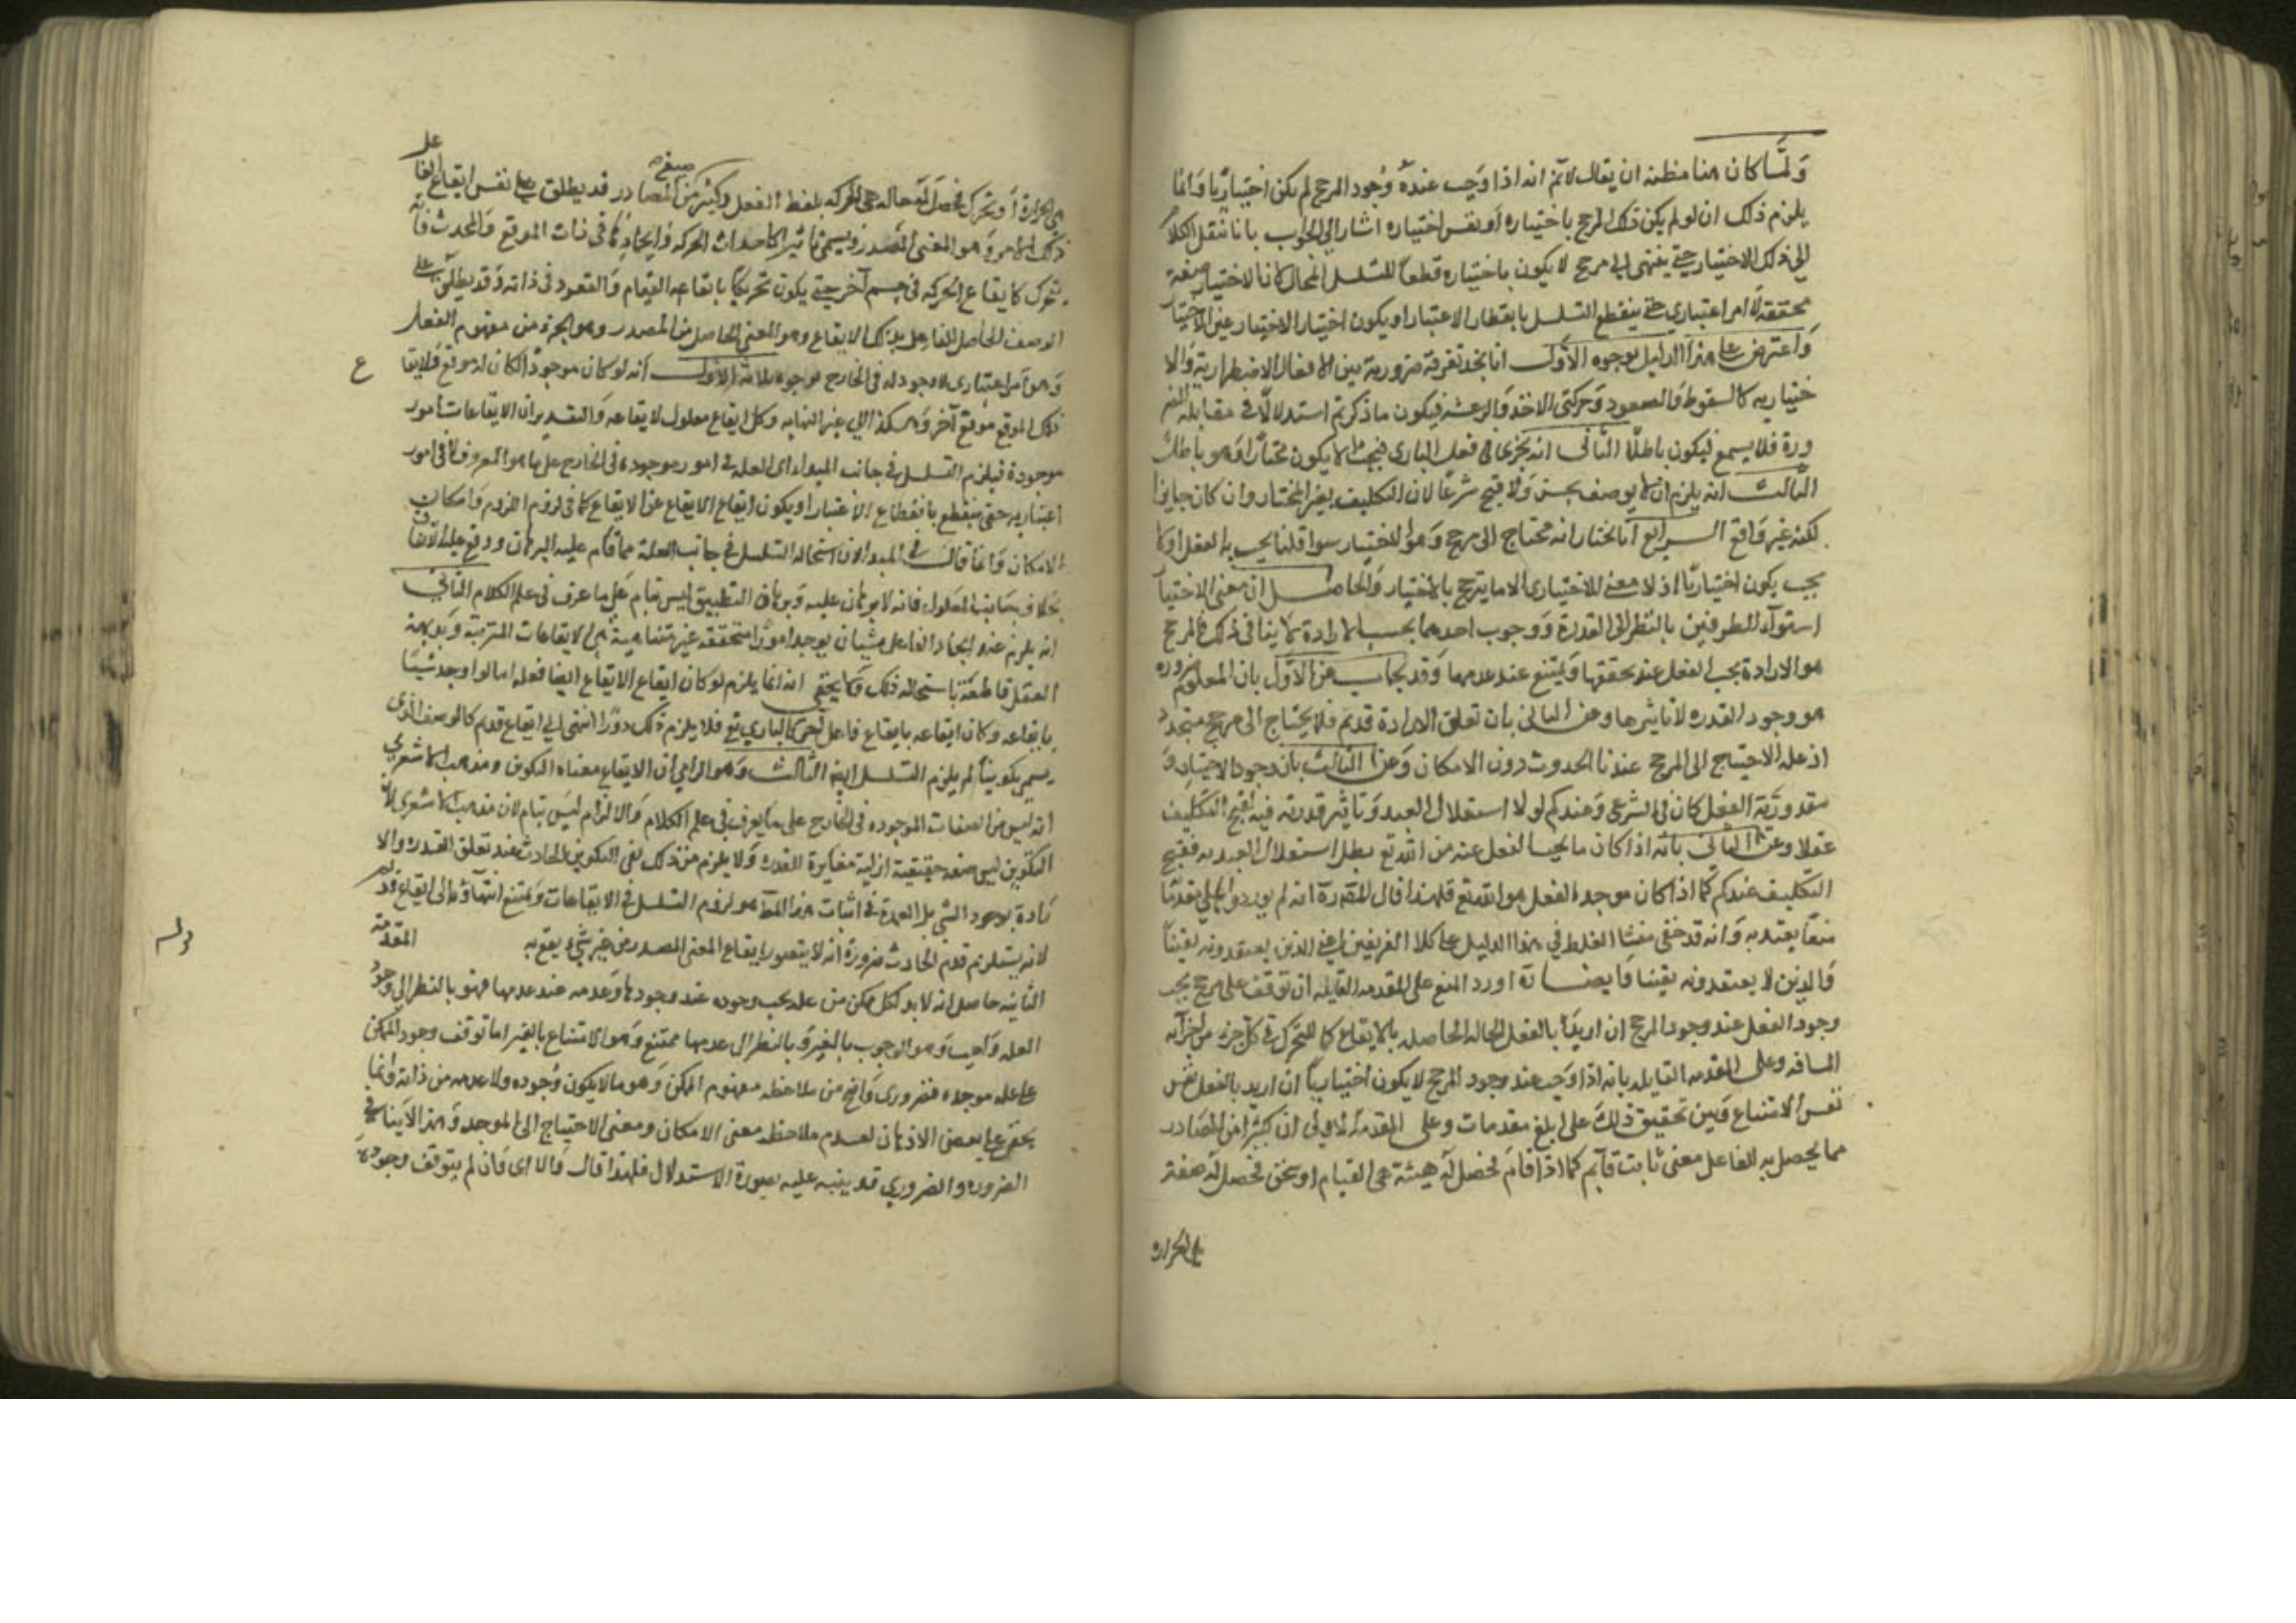 وَلمَّا كان هنا مظنة ان يقال لانم انه اذا وَجب عنده وُجود المرجح لم يكن اختياريًا وَانما
يلزم ذلك ان لو لم يكن ذلك المرجح باختياره أو نفس اختياره اشار الي الجواب بانا ننقل الكلام
الي ذلك الاختيار حتي ينتهي الي مرجح لا يكون باختياره قطعاً للتسلسل المحال كانا لاختيار صفة
محققة لا امر اعتباري حتي ينقطع التسلسل بانقطاع الاعتبار او يكون اختيار الاختيار عين الاختيار
وَاعترض علي هذا الدليل بوجوه الأوّل انا نجد تفرقة ضرورية بين الافعال الاضطرارية وَالا
ختياريه كالسقوط وَالصعود وَحركتى الاخذ وَالرعشه فيكون ما ذكرتم استدلالاً في مقابلة الضر
ورة فلا يسمع فيكون باطلًا الثانى انه يجرى في فعل البارى فيجب ان لا يكون مختارًا وَهو باطل
الثالث انه يلزم ان لا يوصف بحسن وَلا قبح شرعًا لان التكليف بغير المختار وان كان جايزا
لكنه غير وَاقع الـرابع انا نختار انه محتاج الى مرجح وَهو الاختيار سوا قلنا يجب به الفعل اولا
يجب يكون اختياريًا اذ لا معني للاختيارى الا ما يترجح بالاختيار وَالحاصـل ان معنى الاختيار
استوآء الطرفين بالنظر الى القدرة وَوجوب احدهما بحسب الارادة لا ينافى ذلك فالمرجح
هو الارادة يجب الفعل عند تحققها وَيمتنع عند عدمها وَقد يجاب عن الأوّل بان المعلوم ضروره
هو وجود القدره لا تاثيرها وعن الثانى بان تعلق الارادة قديم فلا يحتاج الى مرجح متجدد
اذ علة الاحتياج الى المرجح عندنا الحدوث دون الامكان وَعن الثالث بان وجود الاختيار وَ
مقدوريّة الفعل كان في الشرعى وَعندكم لولا استقلال العبد وَتاثير قدرته فيه لقبح التكليف
عقلا وعن الثانى بانّه اذا كان ما يجب الفعل عنه من الله تع بطل استقلال العبد به فقبح
التكليف عندكم كما اذا كان موجد الفعل هو الله تع فلهذا قال المص ره انه لم يوردوا علي مقدماته
منعًا يعتد به وَانه قد خفى منشا الغلط في هذا الدليل علي كلا الفريقين اعني الذين يعتقدونه يقيناً
وَالذين لا يعتقدونه يقينا فايضـاته اورد المنع على المقدمه القايله ان توقف على مرجح يجب
وجود الفعل عند وجود المرجح ان اريد بالفعل الحالة الحاصله بالايقاع كما للمتحرك في كل جزء من اجزآء
المسافه وعلى المقدمه القايله بانه اذا وَجب عند وجود المرجح لا يكون اختياريًا ان اريد بالفعل نفس
نفس الامتناع وَبين تحقيق ذلك على اربع مقدمات وعلى المقدمة الاولى ان كثيرا من المصادر
مما يحصل به للفاعل معنى ثابت قآيم كما اذا قامَ فحصل له هيئة هى القيام او سخن فحصل له صفة
هى الحراره
هى الحرارة أو تحرك فحصل له حاله هى الحركه بلفظ الفعل وكثير من صيغ المصادر قد يطلق علي نفس ايقاع الفاعل
ذلك الامر وَهو المعنى المصدرى ويسمى تاثيرا كاحداث الحركه وَايجادها في ذات الموقع وَالمحدث فانه
تحرك كايقاع الحركه في جسم آخر حتي يكون تحريكاً بايقاعه القيام وَالقعود في ذاته وَقد يطلق علي
الوصف الحاصل للفاعل بذلك الايقاع وهو المعنى الحاصل من المصدر وهو الجزء من مفهوم الفعل
وَهو أمر اعتبارى لا وجود له في الخارج لوجوه ثلاثة الأوّل انه لو كان موجوداً لكان له موقع فلايقاع
ذلك الموقع موقع آخر وَهكذا الي غير النهايه وكل ايقاع معلول لايقاعه وَالتقدير ان الايقاعات امور
موجودة فيلزم التسلسل في جانب المبداء اى العله في امور موجوده في الخارج علي ما هو المعروف لا في امور
اعتباريه حتى ينقطع بانقطاع الاعتبار او يكون ايقاع الايقاع عين الايقاع كما في لزوم اللزوم وَامكان
الامكان وَانما قال في المبدا لان استحاله التسلسل في جانب العلة مما قام عليه البرهان ووقع عليه الاتفاق
بخلاف جانب المعلول فانه لا برهان عليه وَبرهان التطبيق ليس بتام عَلي ما عرف في علم الكلام الثانى
انه يلزم عند ايجاد الفاعل شيئا ان يوجد امورًا متحققه غير متناهية هى الايقاعات المترتبة وَبديهة
العقل قاطعَة باستحالة ذلك وَلا يخفى انه انما يلزم لو كان ايقاع الايقاع ايضا فعله اما لو اوجد شيئًا
بايقاعه وكان ايقاعه بايقاع فاعل آخر كالباري تع فلا يلزم ذلك دورًا انتهى الي ايقاع قديم كالوصف الذى
يسمى تكوينًا لم يلزم التسلسل ايضا الثالث وَهو الزامى ان الايقاع معناه التكوين ومذهب الاشعري
انه ليس من الصفات الموجوده في الخارج على ما يعرف في علم الكلام وَالالزام ليسَ بتام لان مذهب الاشعرى ان
التكوين ليس صفة حقيقية ازلية مغايرة للقدره وَلا يلزم من ذلك نفى التكوين الحادث عند تعلق القدره والا
رادة بوجود الشي بل العمدة في اثبات هذا المط هو لزوم التسلسل في الايقاعات وَيمتنع انتهآؤها الى ايقاع قديم
لانه يستلزم قدم الحادث ضرورة انه لا يتصور ايقاع المعنى المصدرى من غير شيء يقع به المقدمة
الثانيه حاصله انه لابد لكل ممكن من علة يجب وجوده عند وجودها وَعدمه عند عدمها فهو بالنظر الي وجود
العله وَاجب وَهو الوجوب بالغير وَبالنظر الى عدمها ممتنع وَهو الامتناع بالغير اما توقف وجود الممكن
على علة موجده فضرورى وَاضح من ملاحظه مفهوم الممكن وَهو ما لا يكون وُجوده ولا عدمه من ذاته وَانما
يخفى علي بعض الاذهان لعدم ملاحظه معنى الامكان ومعنى الاحتياج الى الموجد وَهذا لا ينافى
الضروره والضروري قد ينبه عليه بصورة الاستدلال فلهذا قال فَالا اى فَان لم يتوقف وجوده